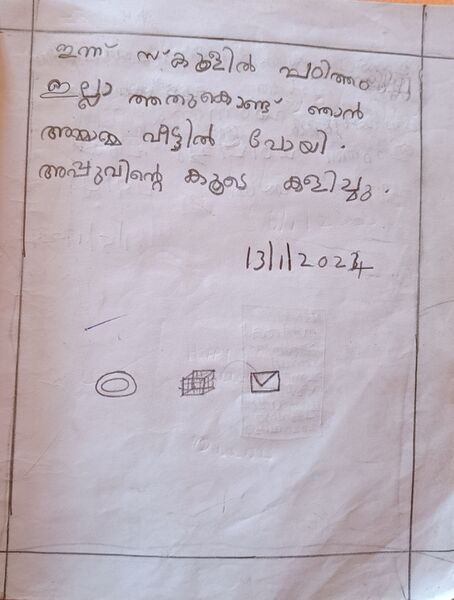 ഇന്ന് സ്കൂളിൽ പഠിത്തം
ഇല്ലാ അതുകൊണ്ട് ഞാൻ
അമ്മമ്മ വീട്ടിൽ പോയി.
അപ്പുവിന്റെ കൂടെ കളിച്ചു.
13/1/2024